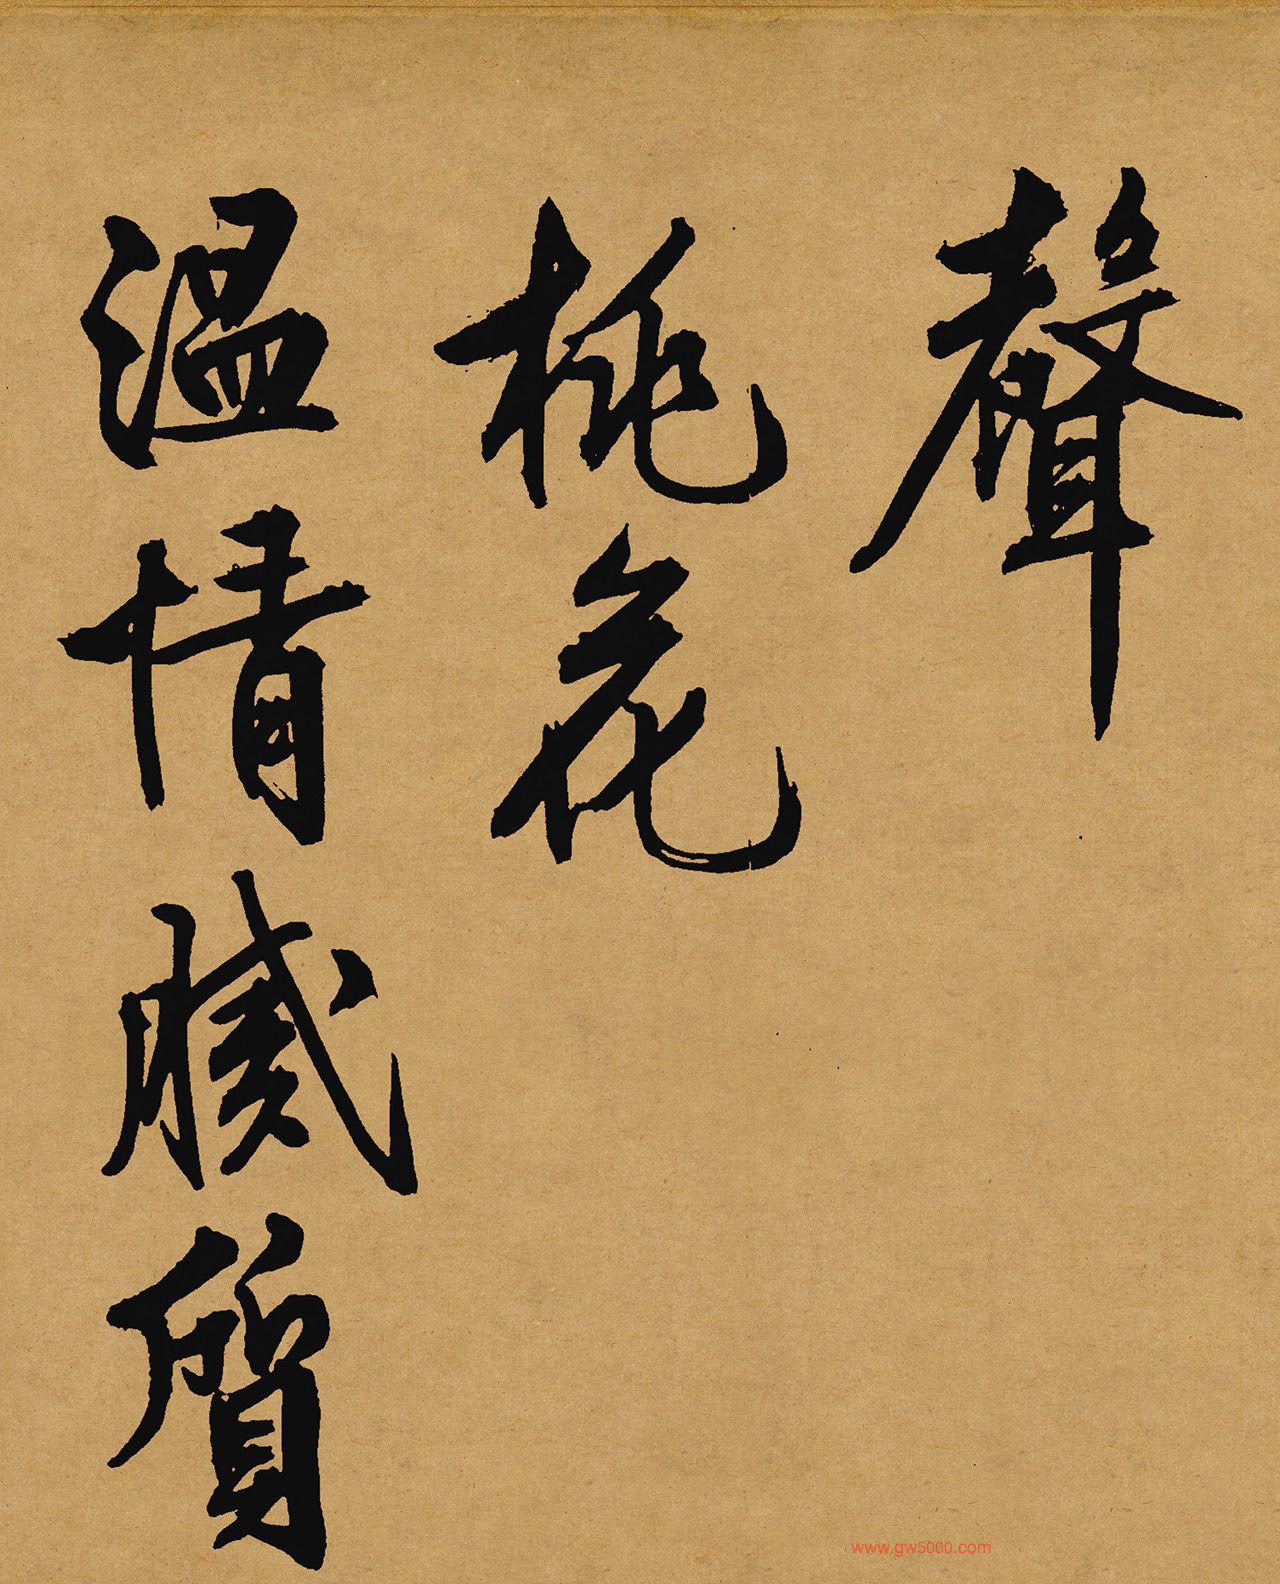 聲
桃花
溫情膩質
www.gw5000.com